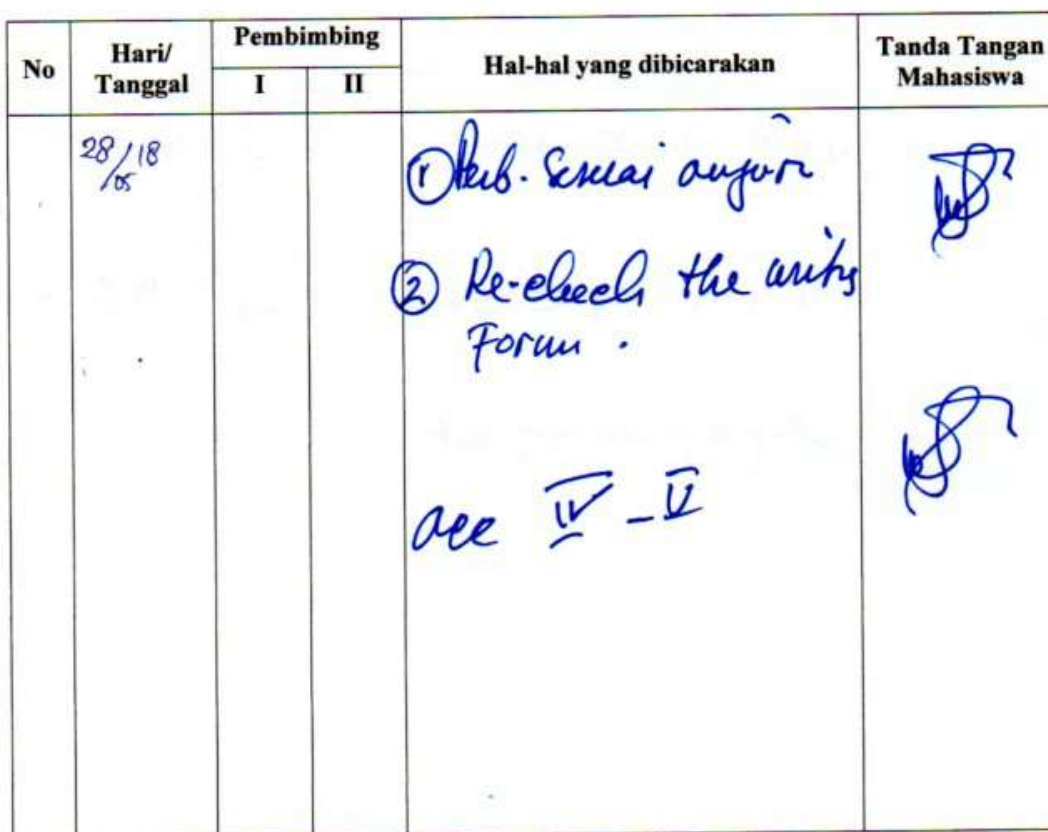 No
Hari/
Tanggal
Pembimbing
I
II
Hal-hal yang dibicarakan
Tanda Tangan
Mahasiswa
28/05/18
① Perb. Sesuai
② Re-check the
Form .
acc IV - V